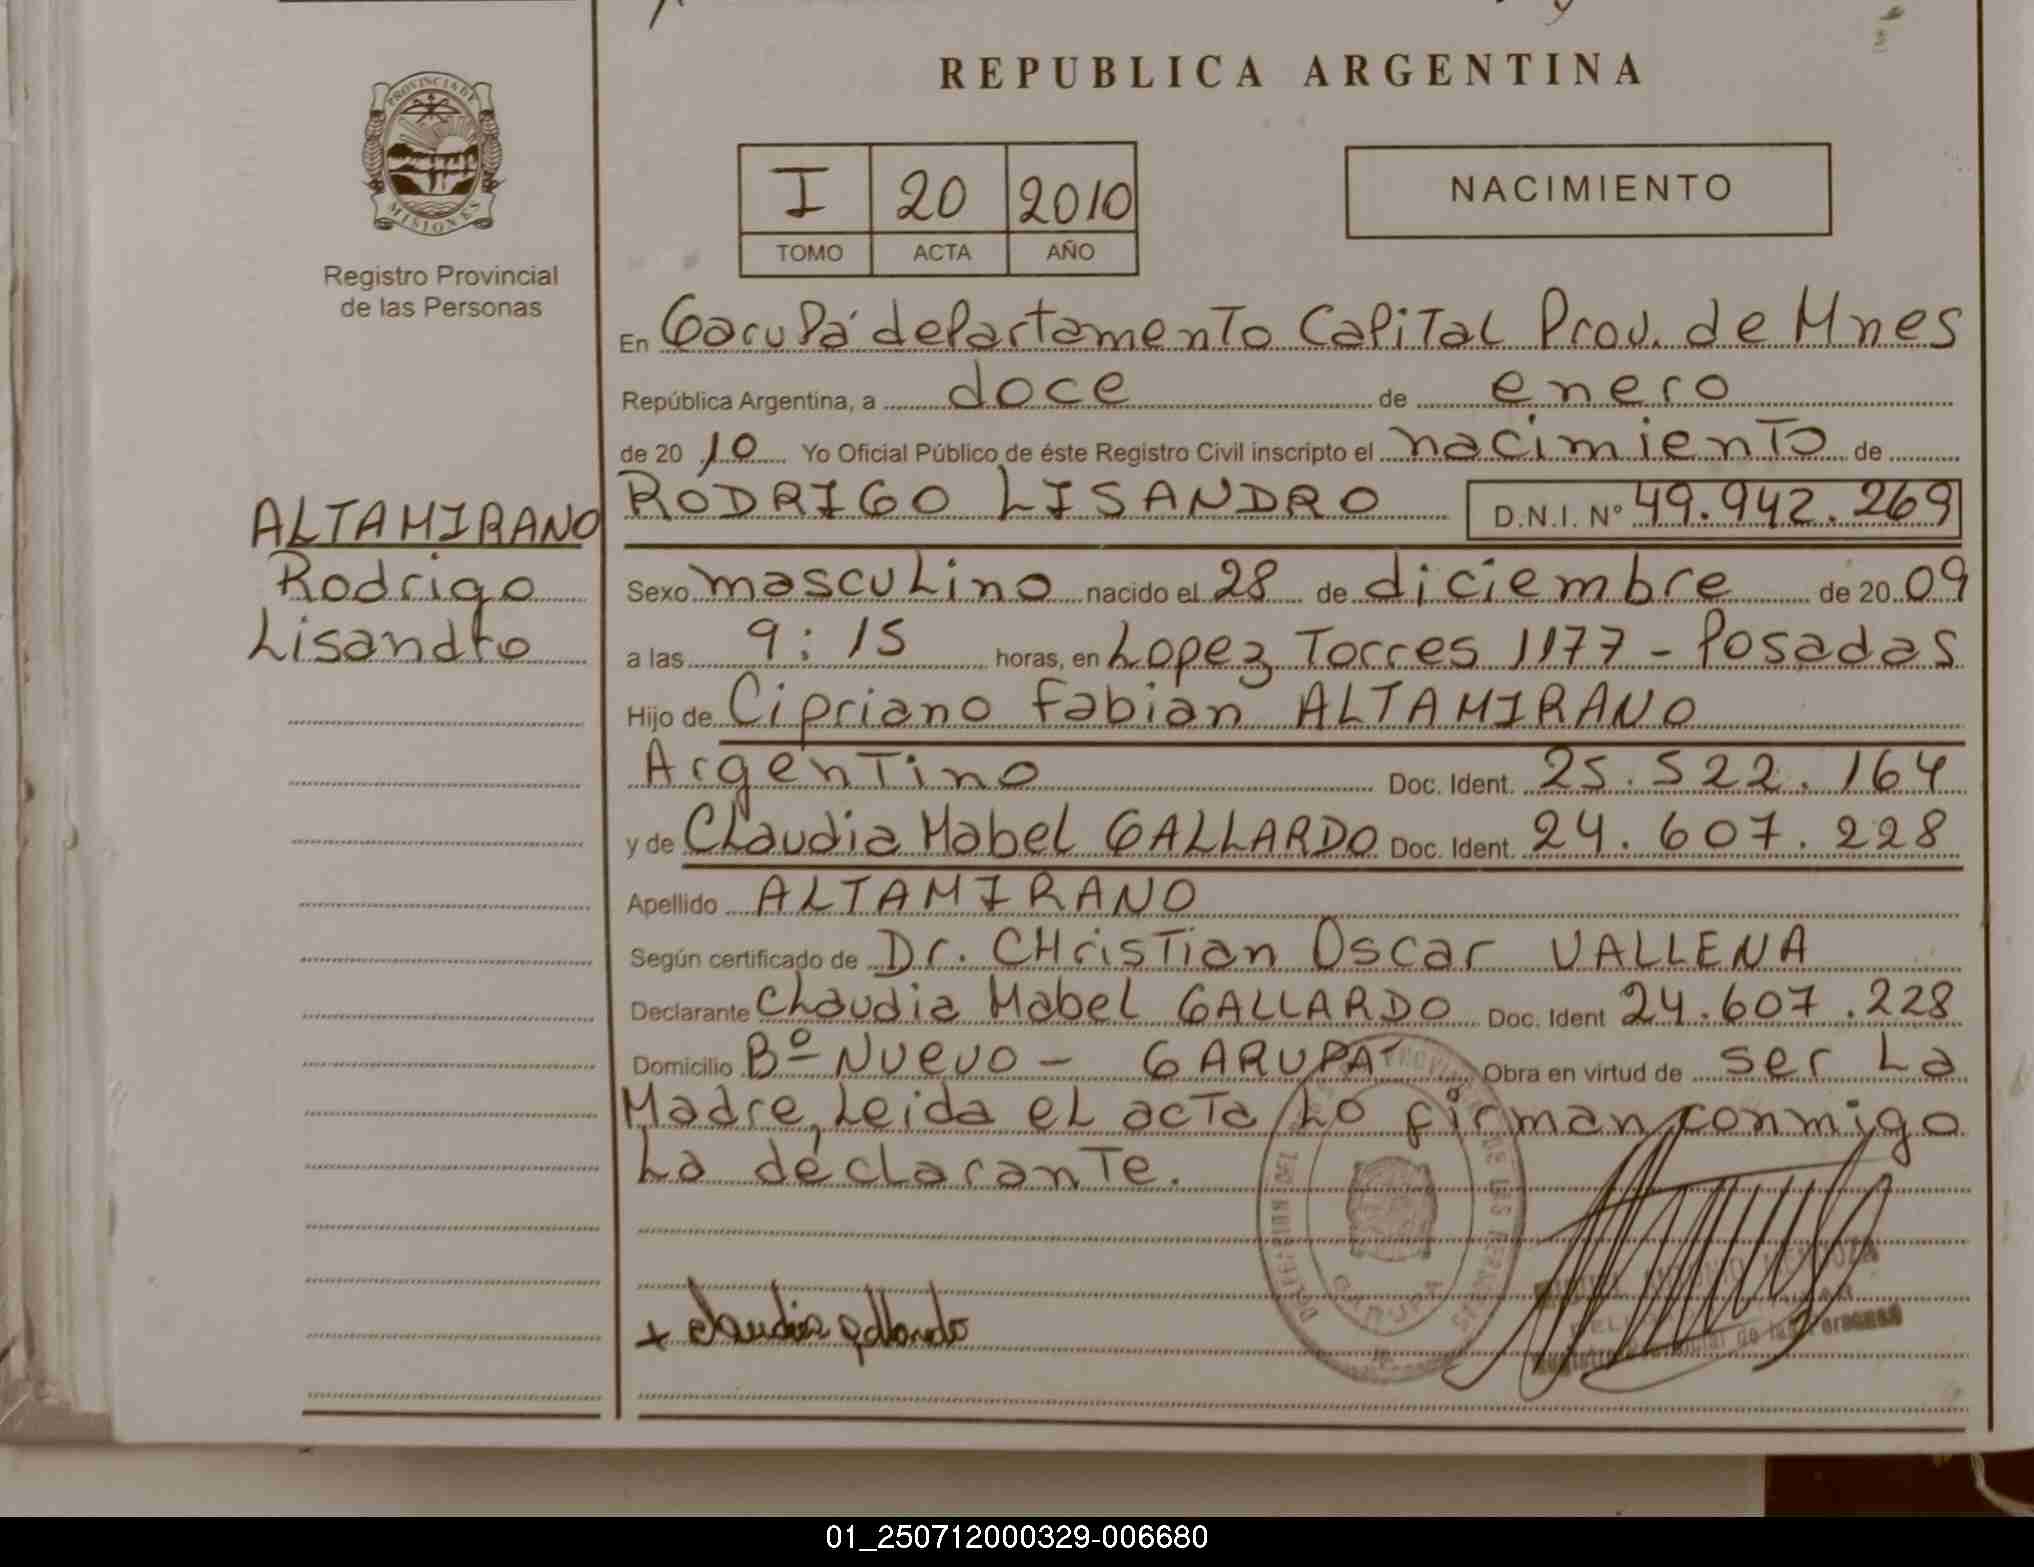 REPUBLICA ARGENTINA
PROVINCIA DE
MISIONES
Registro Provincial
de las Personas
I 20 2010
TOMO ACTA AÑO
NACIMIENTO
En Garupá departamento Capital Prov. de Mnes
República Argentina, a doce de enero
de 20 10 Yo Oficial Público de éste Registro Civil inscripto el nacimiento de
ALTAMIRANO
Rodrigo
Lisandro
RODRIGO LISANDRO D.N.I. Nº 49.942.269
Sexo masculino nacido el 28 de diciembre de 20 09
a las 9:15 horas, en Lopez Torres 1177 - Posadas
Hijo de Cipriano Fabian ALTAMIRANO
Argentino Doc. Ident. 25.522.164
y de Claudia Mabel GALLARDO Doc. Ident. 24.607.228
Apellido ALTAMIRANO
Según certificado de Dr. CHristian Oscar VALLENA
Declarante Claudia Mabel GALLARDO Doc. Ident 24.607.228
Domicilio Bº Nuevo - GARUPA Obra en virtud de ser La
Madre, Leida el acta Lo firman conmigo
La declarante.
+ Claudia gallardo
GARUPA
01_250712000329-006680